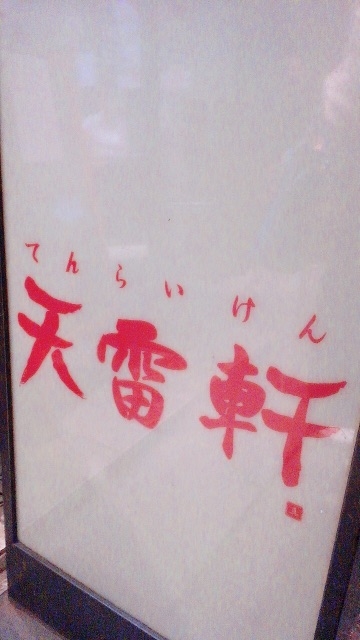 てんらいけん
天雷軒